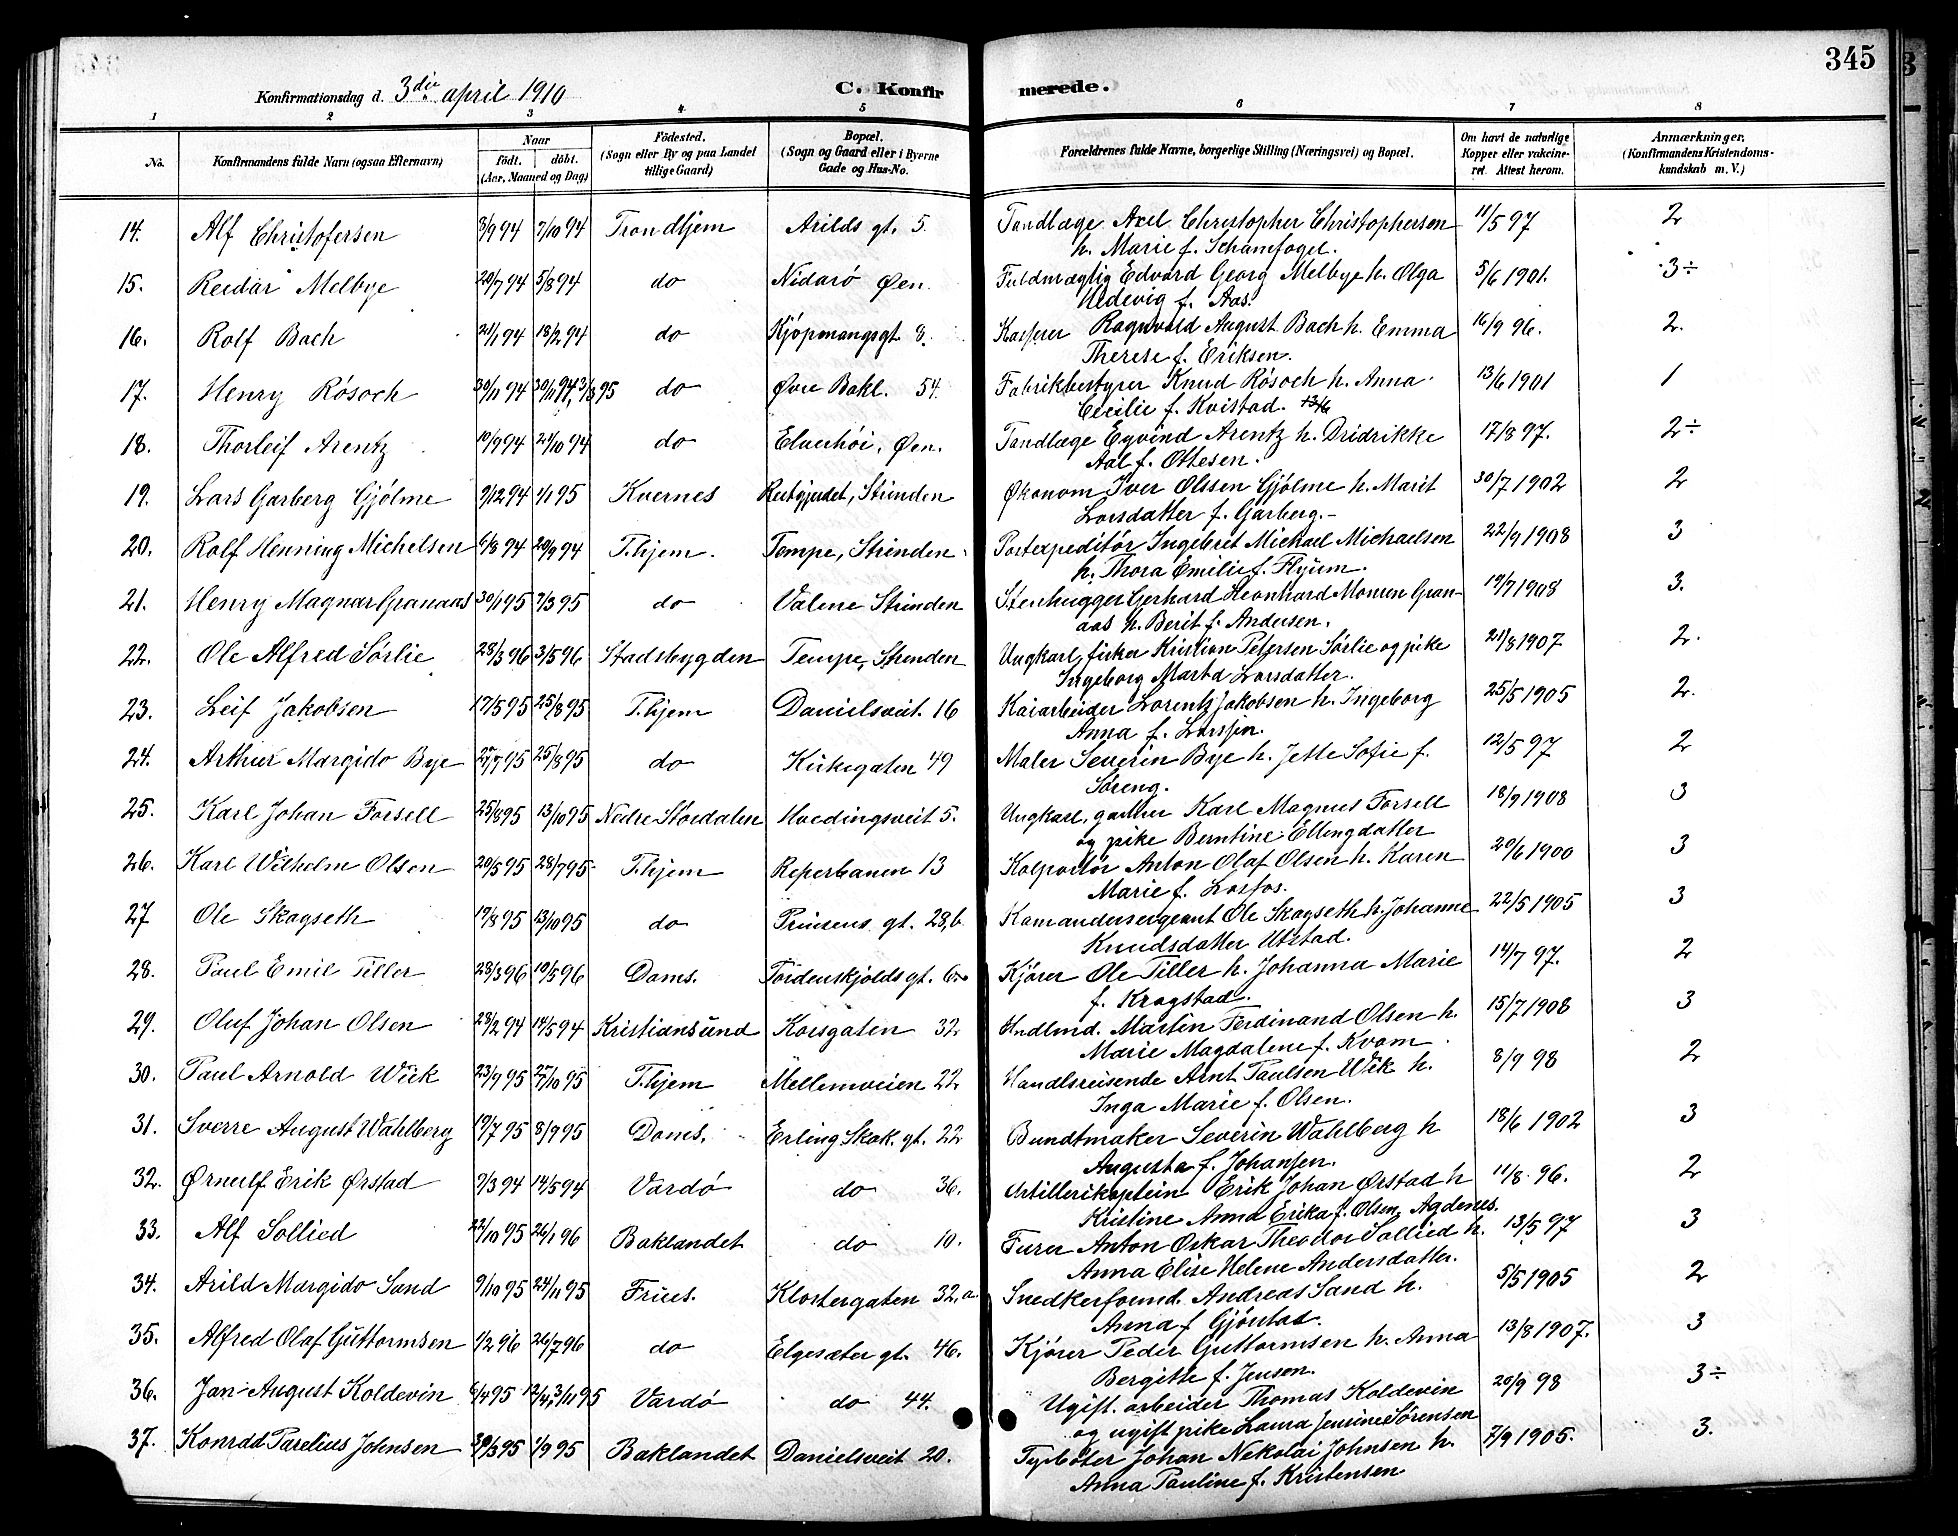 345
Konfirmationsdag d. 3die april 1910
C. Konfirmerede.
1 2 3 4 5 6 7 8
No. Konfirmandens fulde Navn (ogsaa Efternavn) Naar født. døbt. (Aar, Maaned og Dag) Fødested. (Sogn eller By og paa Landet tillige Gaard) Bopæl. (Sogn og Gaard eller i Byerne Gade og Hus-No. Forældrenes fulde Navne, borgerlige Stilling (Næringsvei) og Bopæl. Om havt de naturlige Kopper eller vakcineret. Attest herom. Anmærkninger, (Konfirmandens Kristendomskundskab m. V.)
14. Alf Christofersen 3/9 94 7/10 94 Trondhjem Arilds gt. 5. Tandlæge Axel Christopher Christophersen 11/5 97 2
h. Marie f. Schamfogel.
15. Reidar Melbye 20/7 94 5/8 94 do Nidarö Øen. Fuldmægtig Edvard Georg Melbye h. Olga 5/6 1901. 3÷
Hedevig f. Aas.
16. Rolf Bach 21/1 94 18/2 94 do Kjöpmangsgt. 8. Kasserer Ragnvald August Bach h. Emma 16/9 96. 2.
Therese f. Eriksen.
17. Henry Rösoch 30/11 94 30/11 94, 3/3 95 do Øvre Bakl. 54. Fabrikbestyrer Knud Rösoch h. Anna 13/6 1901 1
Cecilie f. Kvistad. 13/6
18. Thorleif Arentz 10/9 94 21/10 94 do Elverhöi, Øen. Tandlæge Eyvind Arentz h. Dridrikke 17/8 97. 2÷
Aal f. Ottesen.
19. Lars Garberg Gjölme 9/12 94 1/1 95 Kvernes Reitgjerdet, Strinden Økonom Iver Olssen Gjölme h. Marit 30/7 1902 2
Larsdatter f. Garberg.
20. Rolf Henning Michelsen 6/8 94 20/9 94 T.hjem. Tempe, Strinden Postexpeditör Ingebret Mickael Michaelsen 22/9 1908 3
h. Thora Emilie f. Flyum.
21. Henry Magnar Granaas 30/1 95 7/3 95 do Valene Strinden Stenhugger Gerhard Leonhard Monsen Gran- 19/7 1908 3.
aas h. Berit f. Andersen.
22. Ole Alfred Sörlie 28/3 96 3/5 96 Stadsbygden Tempe, Strinden Ungkarl, fisker Kristian Petersen Sörlie og pike 21/8 1907 2.
Ingeborg Marta Larsdatter.
23. Leif Jakobsen 17/5 95 25/8 95 T.hjem Danielsveit. 16 Kaiarbeider Lorentz Jakobsen h. Ingeborg 25/5 1905 2.
Anna f. Larssen.
24. Arthur Margido Bye 27/7 95 25/8 95 do Kirkegaten 49 Maler Severin Bye h. Jette Sofie f. 12/5 97 2
Söreng.
25. Karl Johan Forsell 25/8 95 13/10 95 Nedre Störedalen Hvedingsveit 5. Ungkarl, gartner Karl Magnus Forsell 18/9 1908 3
og pike Berntine Ellingdatter
26. Karl Wilhelm Olsen 20/5 95 28/7 95 T.hjem Reperbanen 13 Kolportör Anton Olaf Olsen h. Karen 20/6 1900 3
Marie f. Losfos.
27 Ole Skagseth 19/8 95 13/10 95 do Prinsens gt. 28,b. Komandersergeant Ole Skagseth h. Johanne 22/5 1905 3
Knudsdatter Utstad.
28. Paul Emil Tiller 28/3 96 10/5 96 Doms. Tordenskjolds gt. 6 Kjörer Ole Tiller h. Johanna Marie 14/7 97. 2
f. Kragstad.
29. Oluf Johan Olsen 28/2 94 14/5 94 Kristiansund Korsgaten 32 Hndlmd. Martin Ferdinand Olsen h. 15/7 1908 3
Marie Magdalene f. Kvam.
30. Paul Arnold Wiik 23/9 95 27/10 95 T.hjem Mellemveien 22 Handlsreisende Arnt Paulsen Wik h. 8/9 98 2
Inga Marie f. Olsen.
31. Sverre August Wahlberg 19/7 95 8/9 95 Doms. Erling Skak. gt. 22 Bundtmaker Severin Wahlberg h 18/6 1902 3
Augusta f. Johansen.
32. Ørnulf Erik Ørstad 9/3 94 14/5 94 Vardö do 36. Artillerikaptein Erik Johan Ørstad h 11/8 96. 2
Kristine Anna Erika f. Olsen, Agdenes.
33. Alf Sollied 22/10 95 26/1 96 Baklandet do 10. Furer Anton Oskar Theodor Sollied h. 13/5 97 3
Anna Elise Helene Andersdatter.
34. Arild Margido Sand 9/10 95 24/11 95 Frues. Klostergaten 32,a. Snedkerformd. Andreas Sand h. 5/5 1905 2
Anna f Gjönstad.
35. Alfred Olaf Guttormsen 1/2 96 26/7 96 do Elgesæter gt. 46. Kjörer Peder Guttormsen h. Anna 13/8 1907. 3
Bergitte f. Jensen.
36. Jan August Koldevin 6/4 95 12/4, 3/11 95 Vardö do 44. Ugift. arbeider Thomas Koldevin 20/9 98 3÷
og ugift pike Laura Jensine Sörensen
37. Konrad Parelius Johnsen 30/3 95 1/9 95 Baklandet Danielsveit 20. Typböter Johan Nekolai Johnsen h. 7/9 1905. 3.
Anna Pauline f. Kristensen